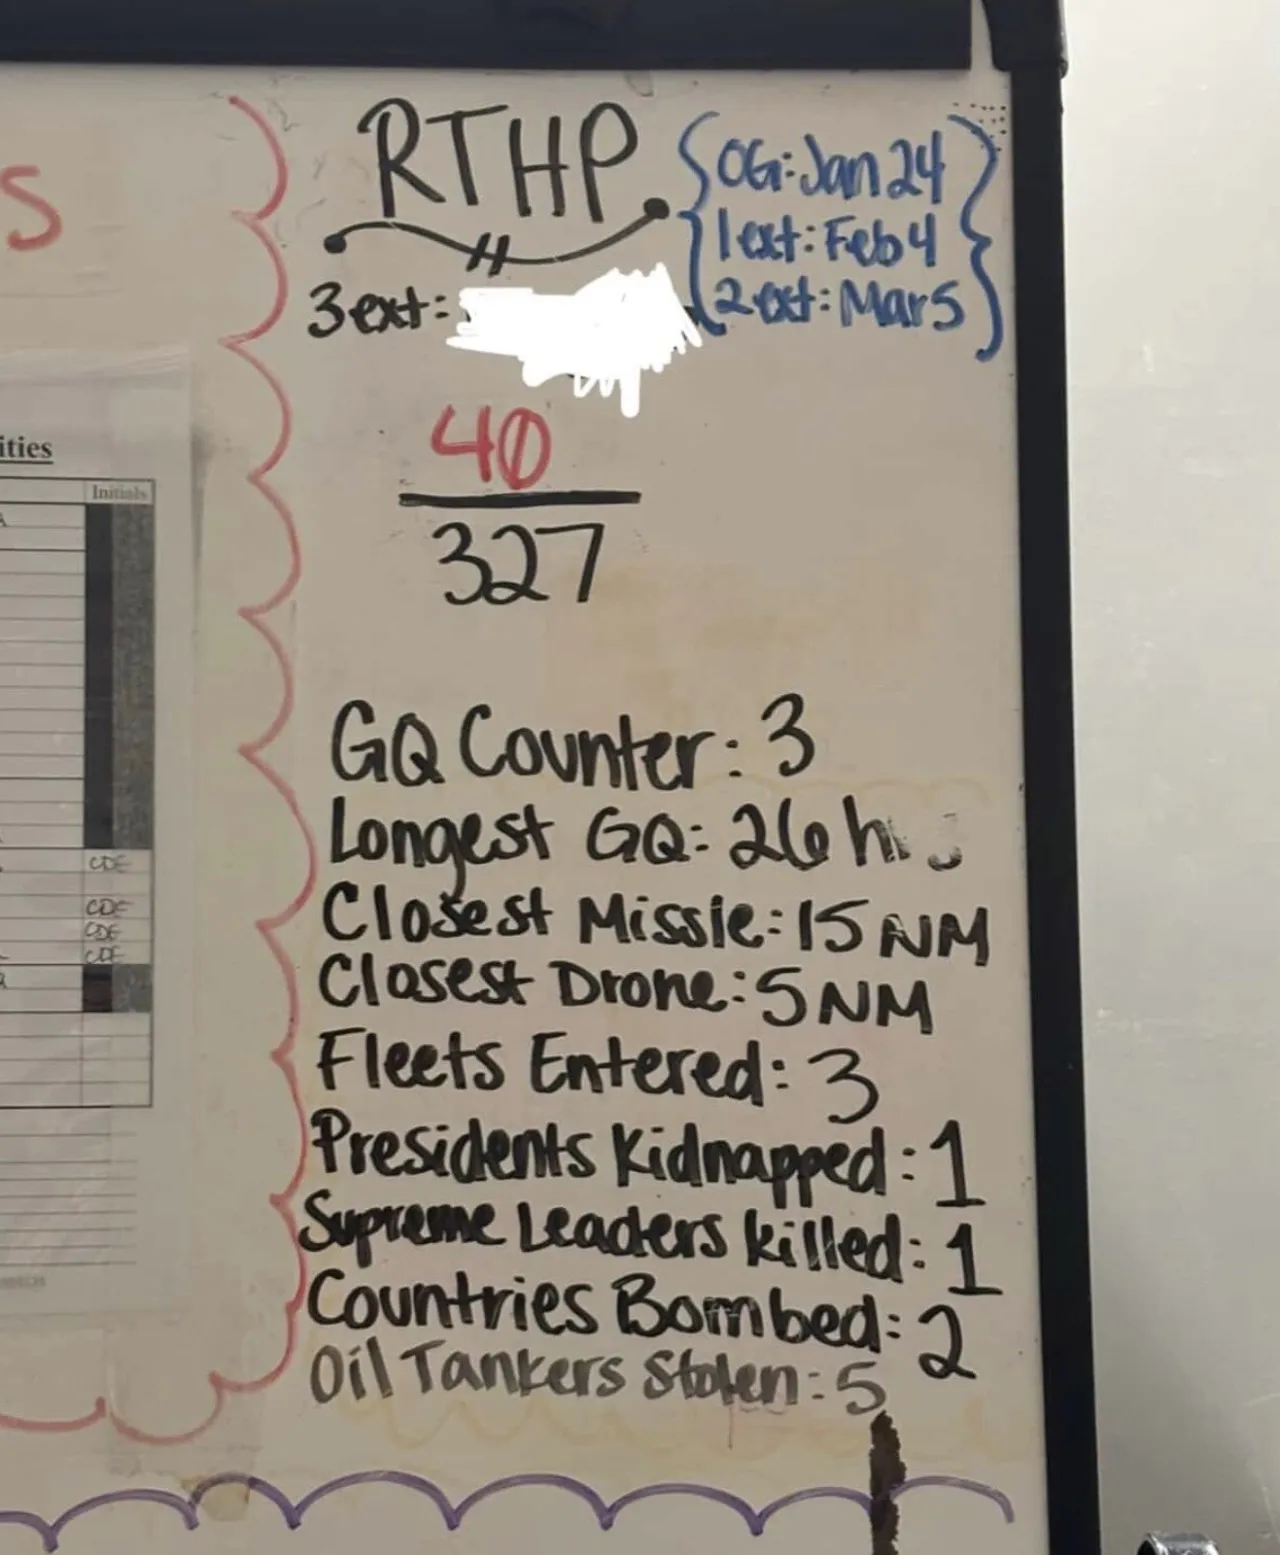 S
RTHP
OG: Jan 24
1ext: Feb 4
2ext: Mar 5
3ext:
40
327
ities
Initials
A
CDE
CDE
CDE
CDE
GQ Counter: 3
Longest GQ: 26 hrs
Closest Missle: 15 NM
Closest Drone: 5 NM
Fleets Entered: 3
Presidents Kidnapped: 1
Supreme Leaders Killed: 1
Countries Bombed: 2
Oil Tankers Stolen: 5